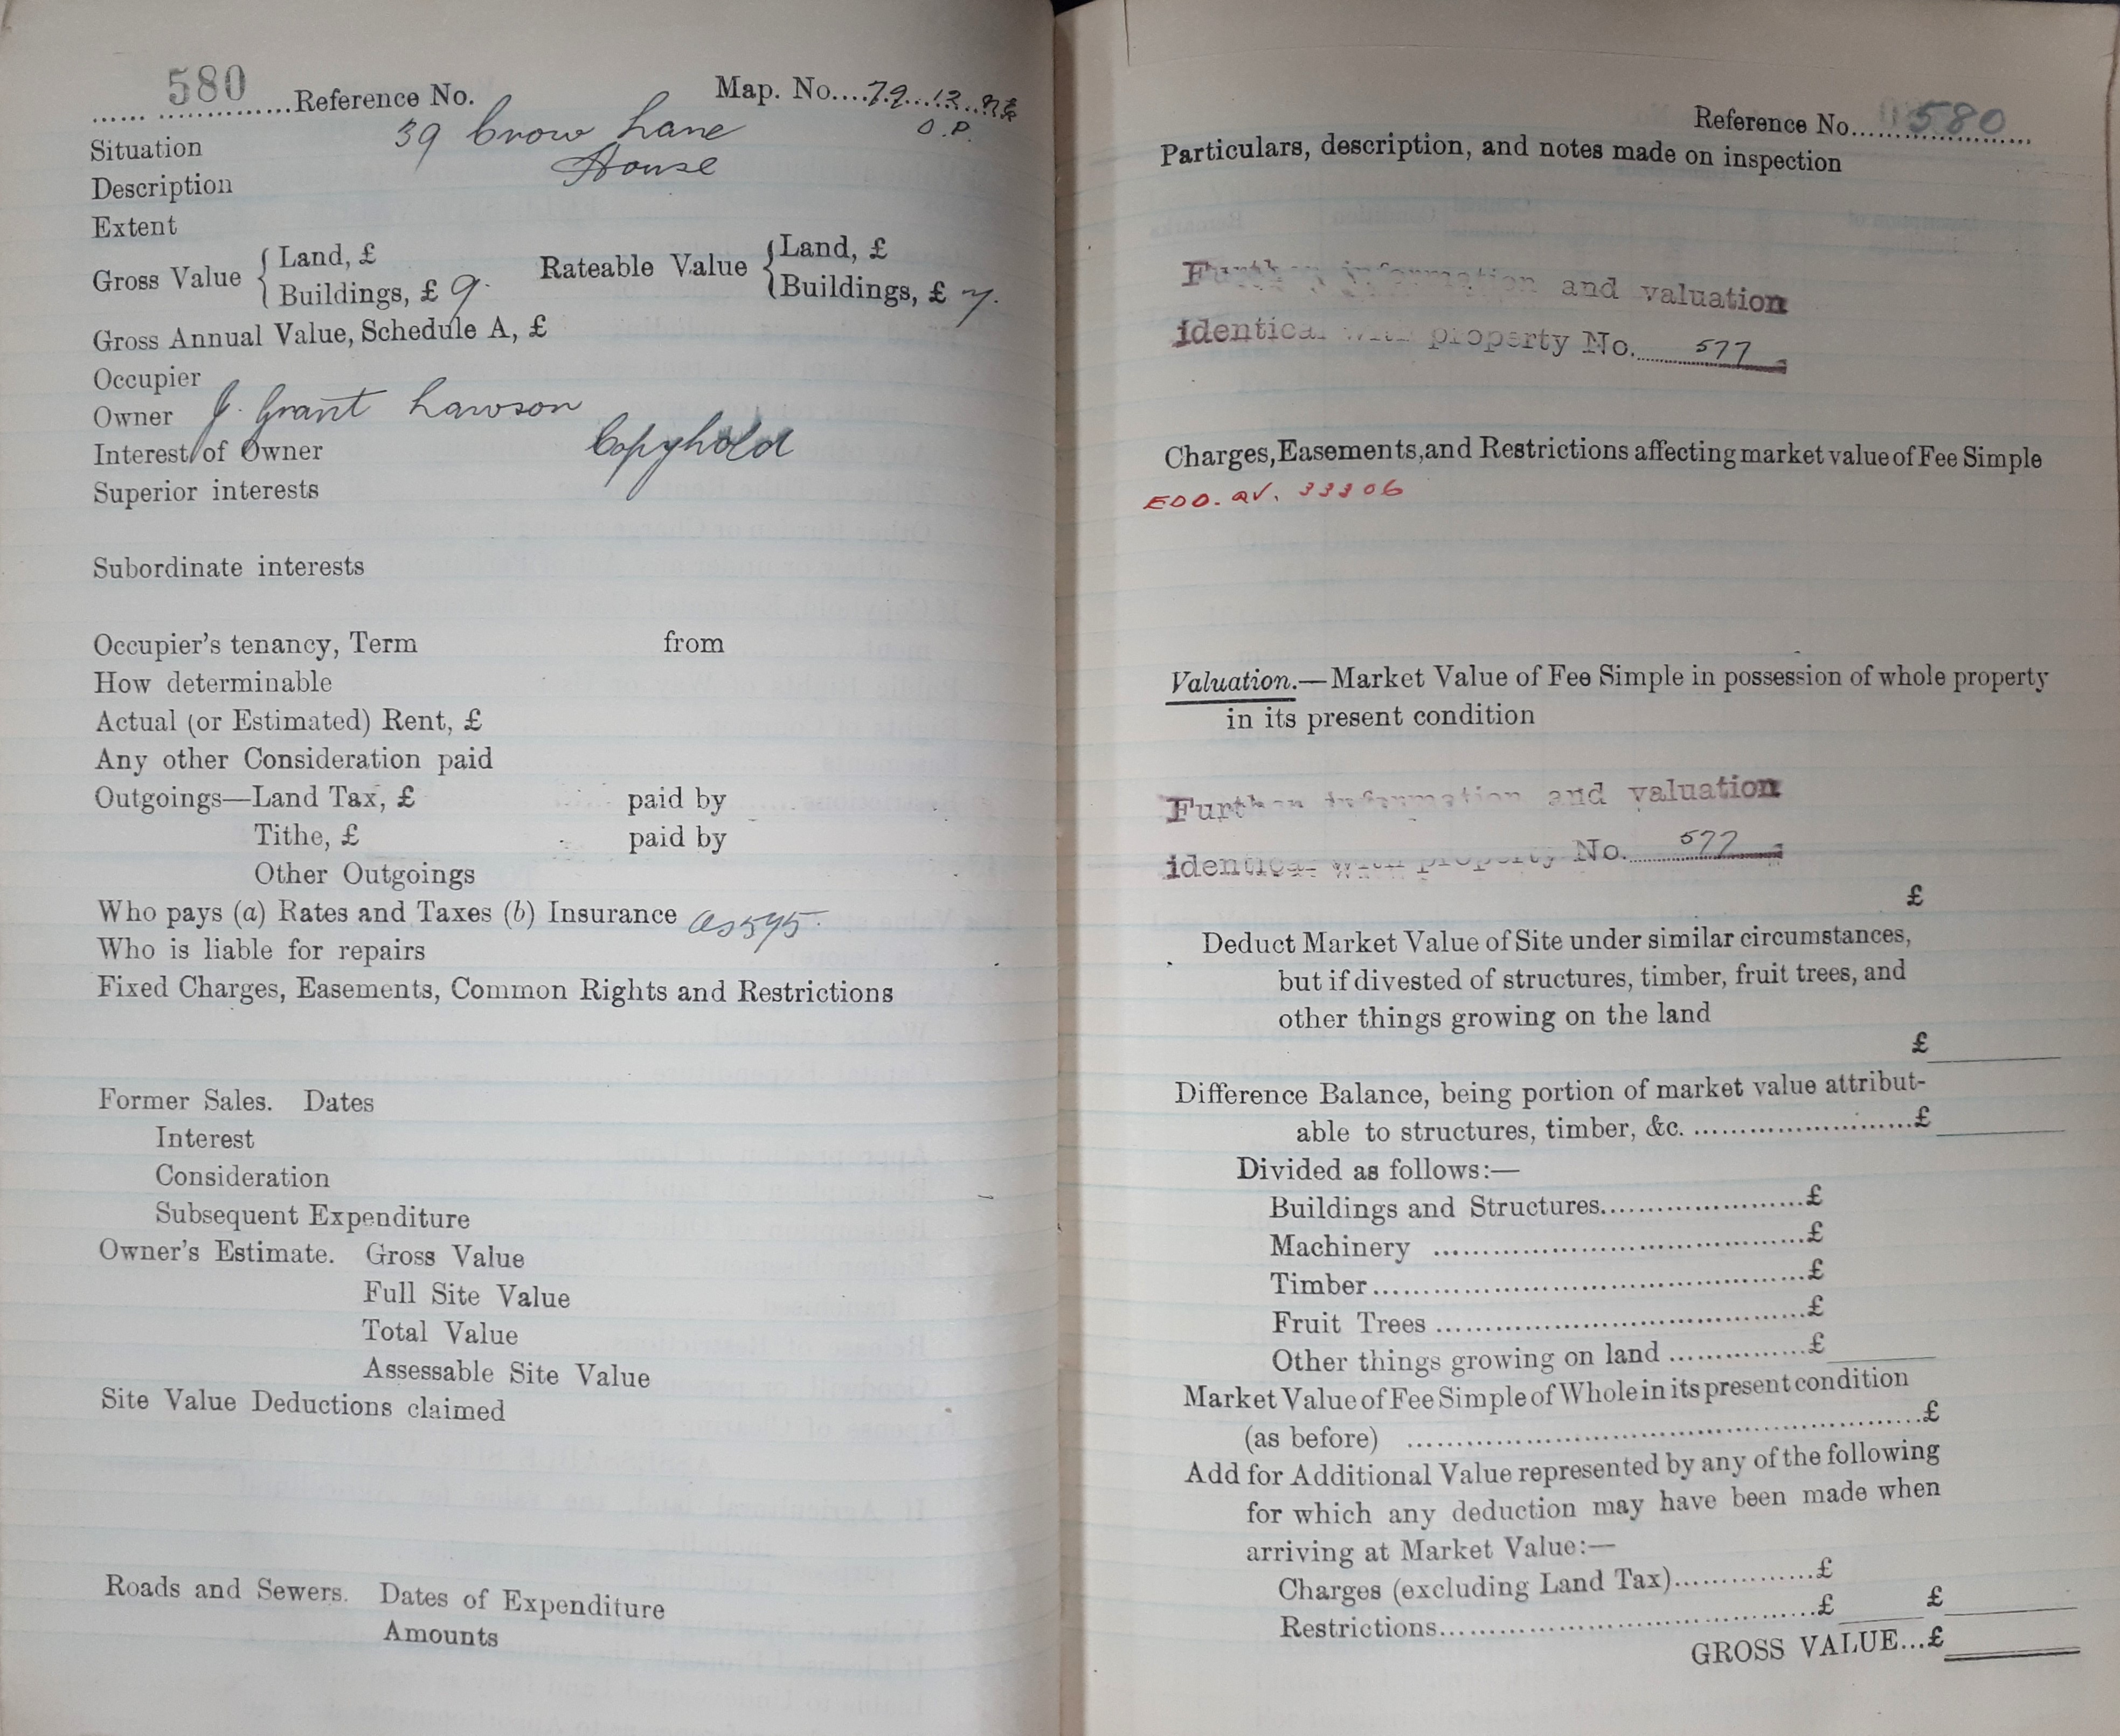 580 Reference No. Map. No. 79. 13. NE
O.P.
Situation 39 Crow Lane
Description House
Extent
Gross Value { Land, £ Rateable Value { Land, £
Buildings, £ 9. Buildings, £ 7.
Gross Annual Value, Schedule A, £
Occupier
Owner J. Grant Lawson
Interest of Owner Copyhold
Superior interests
Subordinate interests
Occupier's tenancy, Term from
How determinable
Actual (or Estimated) Rent, £
Any other Consideration paid
Outgoings—Land Tax, £ paid by
Tithe, £ paid by
Other Outgoings
Who pays (a) Rates and Taxes (b) Insurance as 575.
Who is liable for repairs
Fixed Charges, Easements, Common Rights and Restrictions
Former Sales. Dates
Interest
Consideration
Subsequent Expenditure
Owner's Estimate. Gross Value
Full Site Value
Total Value
Assessable Site Value
Site Value Deductions claimed
Roads and Sewers. Dates of Expenditure
Amounts
Reference No. 580
Particulars, description, and notes made on inspection
Further information and valuation
identical with property No. 577
Charges, Easements, and Restrictions affecting market value of Fee Simple
EDD. av. 33306
Valuation.—Market Value of Fee Simple in possession of whole property
in its present condition
Further information and valuation
identical with property No. 577
£
Deduct Market Value of Site under similar circumstances,
but if divested of structures, timber, fruit trees, and
other things growing on the land
£
Difference Balance, being portion of market value attribut-
able to structures, timber, &c. £
Divided as follows:—
Buildings and Structures £
Machinery £
Timber £
Fruit Trees £
Other things growing on land £
Market Value of Fee Simple of Whole in its present condition
(as before) £
Add for Additional Value represented by any of the following
for which any deduction may have been made when
arriving at Market Value:—
Charges (excluding Land Tax) £
Restrictions £ £
GROSS VALUE...£